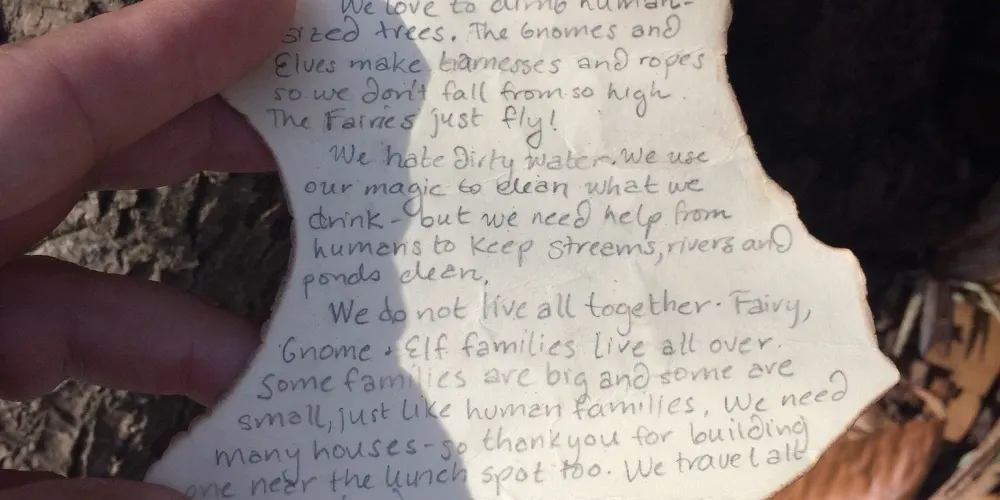 We love to climb human-
sized trees. The Gnomes and
Elves make harnesses and ropes
so we don't fall from so high.
The Fairies just fly!
We hate dirty water. We use
our magic to clean what we
drink - but we need help from
humans to keep streems, rivers and
ponds clean.
We do not live all together. Fairy,
Gnome & Elf families live all over.
Some families are big and some are
small, just like human families. We need
many houses - so thankyou for building
one near the lunch spot too. We travel alt